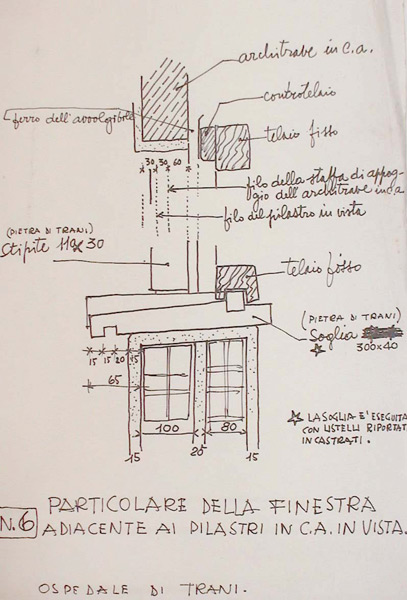 architrave in c.a.
controtelaio
ferro dell'avvolgibile
telaio fisso
30 30 60
filo della staffa di appog-
gio dell'architrave in c.a.
filo del pilastro in vista
(PIETRA DI TRANI)
Stipite 110x30
telaio fisso
(PIETRA DI TRANI)
Soglia
300x40
15 15 20 15
65
☆ LA SOGLIA E' ESEGUITA
CON LISTELLI RIPORTATI
INCASTRATI.
100 80
15 20 15
N.6
PARTICOLARE DELLA FINESTRA
ADIACENTE AI PILASTRI IN C.A. IN VISTA.
OSPEDALE DI TRANI.